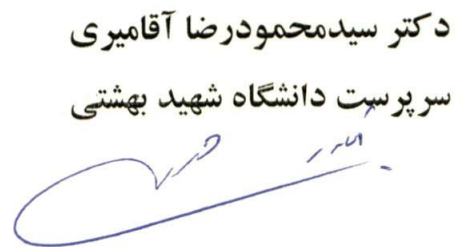 دکتر سیدمحمودرضا آقامیری
سرپرست دانشگاه شهید بهشتی